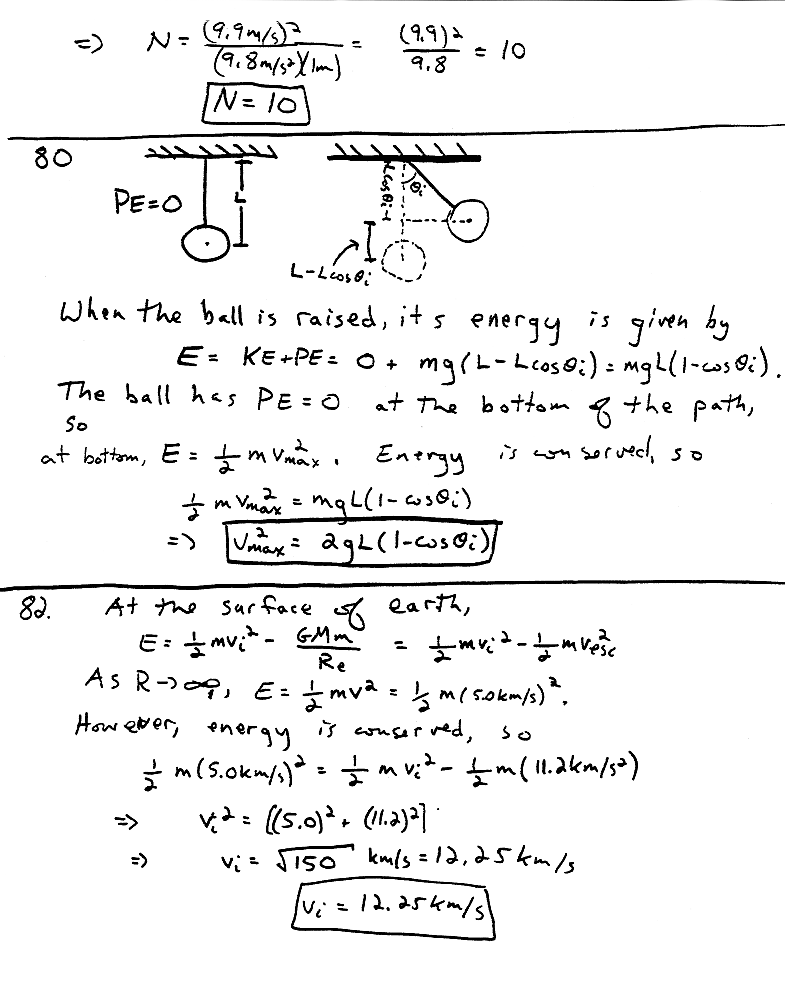 => N = (9.9m/s)² / (9.8m/s²)(1m) = (9.9)² / 9.8 = 10
N = 10
80
PE=0
L
Lcosθi
θi
L-Lcosθi
When the ball is raised, its energy is given by
E = KE+PE = 0 + mg(L-Lcosθi) = mgL(1-cosθi).
The ball has PE=0 at the bottom of the path,
so
at bottom, E = ½ m v²max. Energy is conserved, so
½ m v²max = mgL(1-cosθi)
=> v²max = 2gL(1-cosθi)
82. At the surface of earth,
E = ½ mvi² - GMm / Re = ½ mvi² - ½ mv²esc
As R→∞, E = ½ mv² = ½ m(5.0km/s)².
However, energy is conserved, so
½ m(5.0km/s)² = ½ m vi² - ½ m(11.2km/s²)
=> vi² = [(5.0)² + (11.2)²]
=> vi = √150 km/s = 12.25 km/s
vi = 12.25 km/s